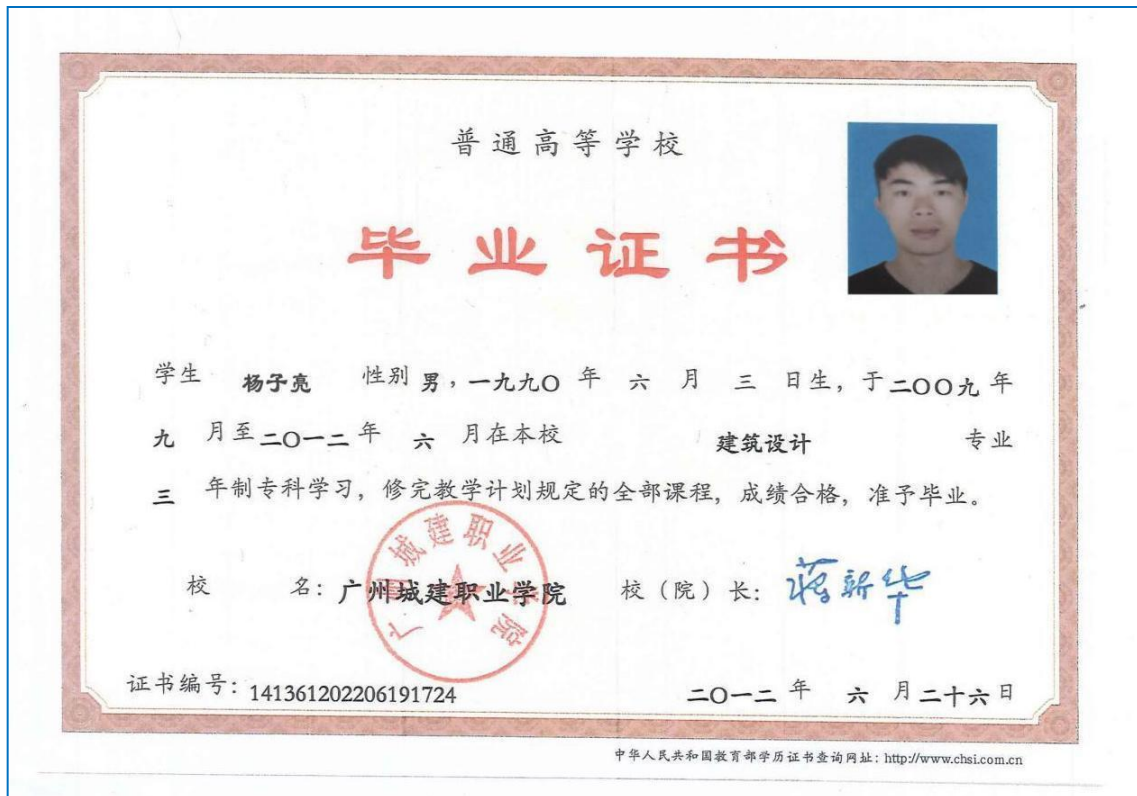 普通高等学校
毕业证书
学生 杨子亮 性别 男，一九九〇 年 六 月 三 日生，于二〇〇九年
九 月至二〇一二年 六 月在本校 建筑设计 专业
三 年制专科学习，修完教学计划规定的全部课程，成绩合格，准予毕业。
广州城建职业学院
校 名：广州城建职业学院 校（院）长：蒋新华
证书编号：141361202206191724 二〇一二 年 六 月二十六日
中华人民共和国教育部学历证书查询网址：http://www.chsi.com.cn